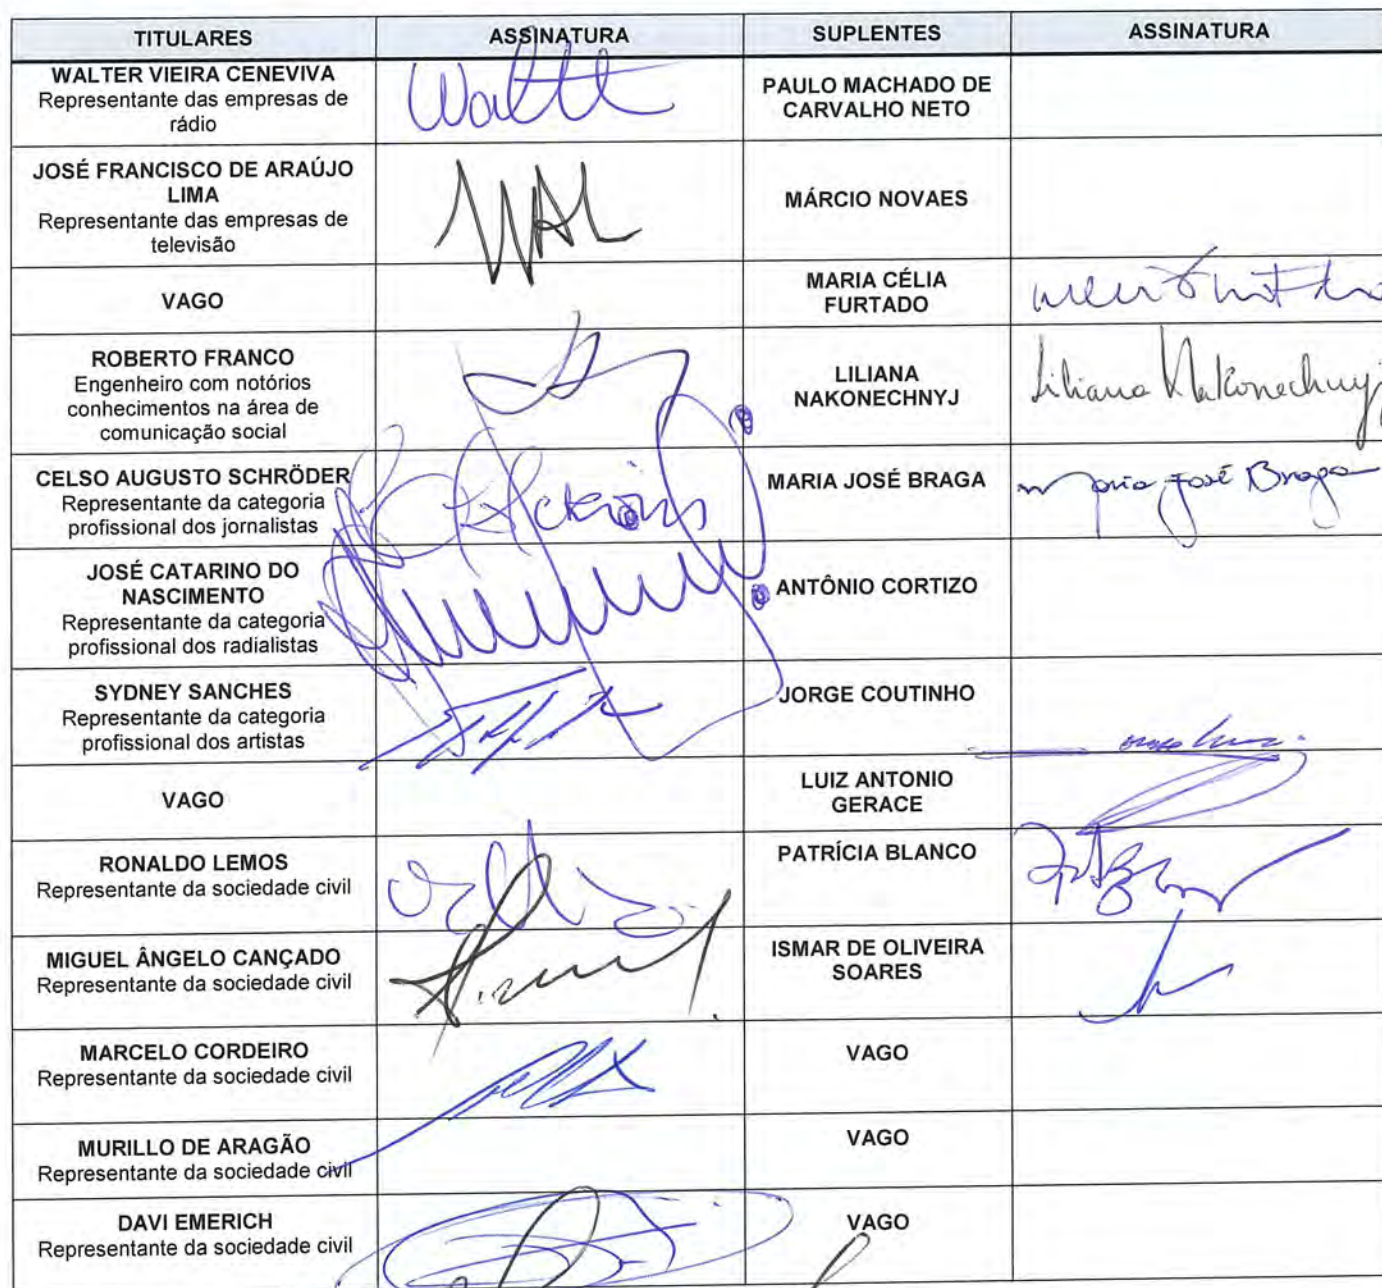 TITULARES ASSINATURA SUPLENTES ASSINATURA
WALTER VIEIRA CENEVIVA
Representante das empresas de
rádio
Walter
PAULO MACHADO DE
CARVALHO NETO
JOSÉ FRANCISCO DE ARAÚJO
LIMA
Representante das empresas de
televisão
MÁRCIO NOVAES
VAGO
MARIA CÉLIA
FURTADO
ROBERTO FRANCO
Engenheiro com notórios
conhecimentos na área de
comunicação social
LILIANA
NAKONECHNYJ
Liliana Nakonechnyj
CELSO AUGUSTO SCHRÖDER
Representante da categoria
profissional dos jornalistas
MARIA JOSÉ BRAGA
Maria José Braga
JOSÉ CATARINO DO
NASCIMENTO
Representante da categoria
profissional dos radialistas
ANTÔNIO CORTIZO
SYDNEY SANCHES
Representante da categoria
profissional dos artistas
JORGE COUTINHO
VAGO
LUIZ ANTONIO
GERACE
RONALDO LEMOS
Representante da sociedade civil
PATRÍCIA BLANCO
MIGUEL ÂNGELO CANÇADO
Representante da sociedade civil
ISMAR DE OLIVEIRA
SOARES
MARCELO CORDEIRO
Representante da sociedade civil
VAGO
MURILLO DE ARAGÃO
Representante da sociedade civil
VAGO
DAVI EMERICH
Representante da sociedade civil
VAGO